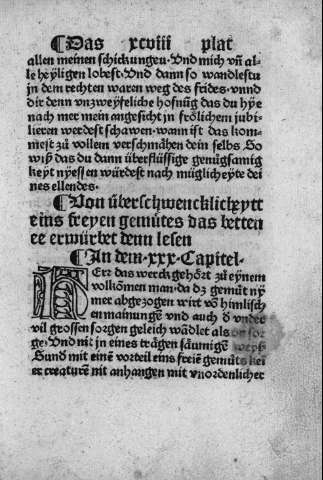 ¶Das xcviii plat
allen meinen schickungen·Vnd mich vñ al-
le heyligen lobest·Vnd dann so wandlestu
in dem rechten waren weg des frides·vnnd
dir denn vnzweyfeliche hofnūg das du hye
nach mer mein angesicht in frölichem jubi-
lieren werdest schawen·wann ist das kom-
mest zů vollem verschmähen dein selbs So
wiß das du dann überflüssige genůgsamig
keyt nyessen würdest nach müglicheyte dei
nes ellendes·
¶Von überschwencklickeytt
eins freyen gemütes das betten
ee erwürbet denn lesen
¶In dem·xxx·Capitel·
HErz das werck gehözt zů eynem
volkōmen man·da dz gemüt ny
mer abgezogen wirt vō himlisch
en mainungen vnd auch d vnder
vil grossen sorgen geleich wādlet als on sor
ge·Vnd nit in eines trägen säumigē weyß
Sund mit einē vorteil eins freiē gemüts kei
er creaturē nit anhangen mit vnordenlicher